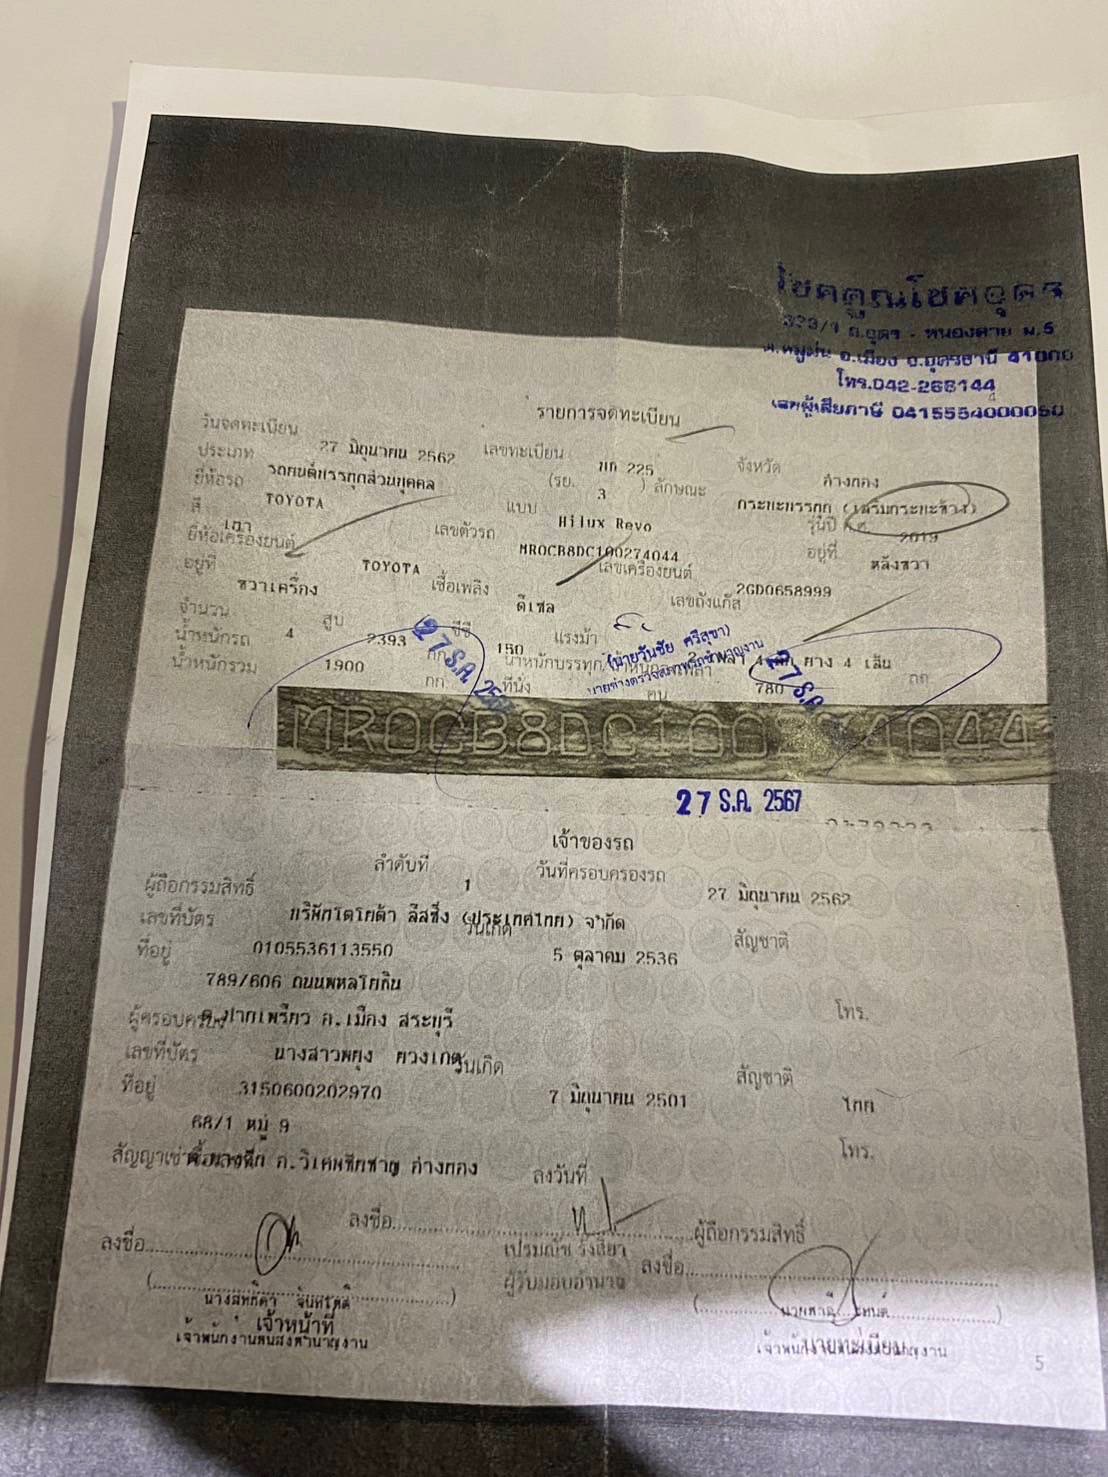 โชคคูณโชคอุดร
323/1 ถ.อุดร - หนองคาย ม.5
ต.หมูม่น อ.เมือง จ.อุดรธานี 41000
โทร.042-266144
เลขผู้เสียภาษี 0415554000050
รายการจดทะเบียน
วันจดทะเบียน 27 มิถุนายน 2562 เลขทะเบียน บก 225 จังหวัด อ่างทอง
ประเภท รถยนต์บรรทุกส่วนบุคคล (รย. 3 ) ลักษณะ กระบะบรรทุก (เสริมกระบะข้าง)
ยี่ห้อรถ TOYOTA แบบ Hilux Revo รุ่นปี ค.ศ. 2019
สี เทา เลขตัวรถ MR0CB8DC100274044 อยู่ที่ หลังขวา
ยี่ห้อเครื่องยนต์ TOYOTA เลขเครื่องยนต์ 2GD0658999
อยู่ที่ ขวาเครื่อง เชื้อเพลิง ดีเซล เลขถังแก๊ส
จำนวน 4 สูบ 2393 ซีซี 150 แรงม้า 2 เพลา 4 ล้อ ยาง 4 เส้น
น้ำหนักรถ 1900 กก. น้ำหนักบรรทุก/น้ำหนักลงเพลา 780 กก.
น้ำหนักรวม กก. ที่นั่ง คน
(นายวันชัย ศรีสุขา)
นายช่างตรวจสภาพรถชำนาญงาน
27 ธ.ค. 2567
27 ธ.ค.
MR0CB8DC100274044
27 ธ.ค. 2567
เจ้าของรถ
ลำดับที่ 1 วันที่ครอบครองรถ 27 มิถุนายน 2562
ผู้ถือกรรมสิทธิ์ บริษัทโตโยต้า ลีสซิ่ง (ประเทศไทย) จำกัด
เลขที่บัตร 0105536113550 วันเกิด 5 ตุลาคม 2536 สัญชาติ
ที่อยู่ 789/606 ถนนพหลโยธิน
ต.ปากเพรียว อ.เมือง สระบุรี โทร.
ผู้ครอบครอง นางสาวพยุง
เลขที่บัตร 3150600202970 วันเกิด 7 มิถุนายน 2501 สัญชาติ ไทย
ที่อยู่ 68/1 หมู่ 9
อ.วิเศษชัยชาญ อ่างทอง โทร.
สัญญาเช่าซื้อ ลงวันที่
ลงชื่อ ผู้ถือกรรมสิทธิ์
เปรมณัช รังสิยา
ผู้รับมอบอำนาจ
ลงชื่อ ลงชื่อ
เจ้าหน้าที่ นายทะเบียน
เจ้าพนักงานขนส่งชำนาญงาน
5